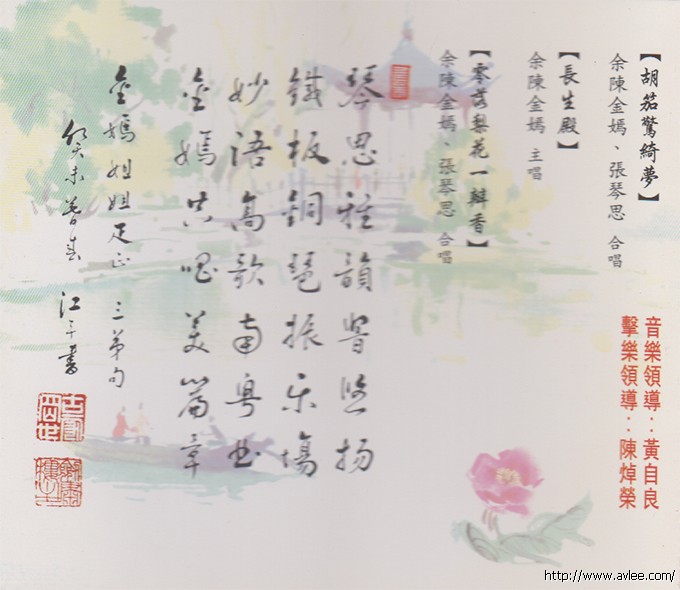 【胡笳驚綺夢】
余陳金嫣、張琴思 合唱
【長生殿】
余陳金嫣 主唱
【零落梨花一瓣香】
余陳金嫣、張琴思 合唱
音樂領導：黃自良
擊樂領導：陳焯榮
琴思雅韻響悠揚
鐵板銅琶振樂場
妙語高歌南粵曲
金嫣共唱美篇章
金嫣姐姐足正 三弟句
癸未暮春 江平書
http://www.avlee.com/